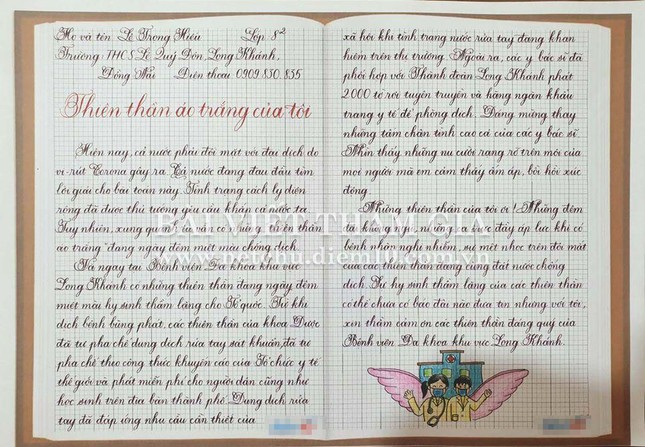 Họ và tên Lê Trọng Hiếu Lớp 8²
Trường THCS Lê Quý Đôn, Long Khánh,
Đồng Nai Điện thoại 0909.850.855
Thiên thần áo trắng của tôi
Hiện nay, cả nước phải đối mặt với đại dịch do
vi-rút Corona gây ra. Cả nước đang đau đầu tìm
lời giải cho bài toán này. Tình trạng cách ly diện
rộng đã được thủ tướng yêu cầu khắp cả nước ta.
Tuy nhiên, xung quanh ta vẫn có những "thiên thần
áo trắng" đang ngày đêm miệt mài chống dịch.
Và ngay tại Bệnh viện Đa khoa khu vực
Long Khánh có những thiên thần đang ngày đêm
miệt mài hy sinh thầm lặng cho Tổ quốc. Từ khi
dịch bệnh bùng phát, các thiên thần của khoa Dược
đã tự pha chế dung dịch rửa tay sát khuẩn, đã tự
pha chế theo công thức khuyến cáo của Tổ chức y tế
thế giới và phát miễn phí cho người dân cũng như
học sinh trên địa bàn thành phố. Dung dịch rửa
tay đã đáp ứng nhu cầu cần thiết của
xã hội khi tình trạng nước rửa tay đang khan
hiếm trên thị trường. Ngoài ra, các y bác sĩ đã
phối hợp với Thành đoàn Long Khánh phát
2000 tờ rơi tuyên truyền và hàng ngàn khẩu
trang y tế để phòng dịch. Đáng mừng thay
những tấm chân tình cao cả của các y bác sĩ.
Nhìn thấy những nụ cười rạng rỡ trên môi của
mọi người mà em cảm thấy ấm áp, bồi hồi xúc
động.
Những thiên thần của tôi ơi! Những đêm
dài không nghỉ, những áp lực đầy áp lực khi có
bệnh nhân nghi nhiễm, sự mệt nhọc trên đôi mắt
của các thiên thần đang cùng đất nước chống
dịch. Sự hy sinh thầm lặng của các thiên thần
có thể chưa có báo đài nào đưa tin nhưng với tôi,
xin thầm cảm ơn các thiên thần đáng quý của
Bệnh viện Đa khoa khu vực Long Khánh.
BÀI VIẾT THAM GIA
www.netchu.diem10.com.vn